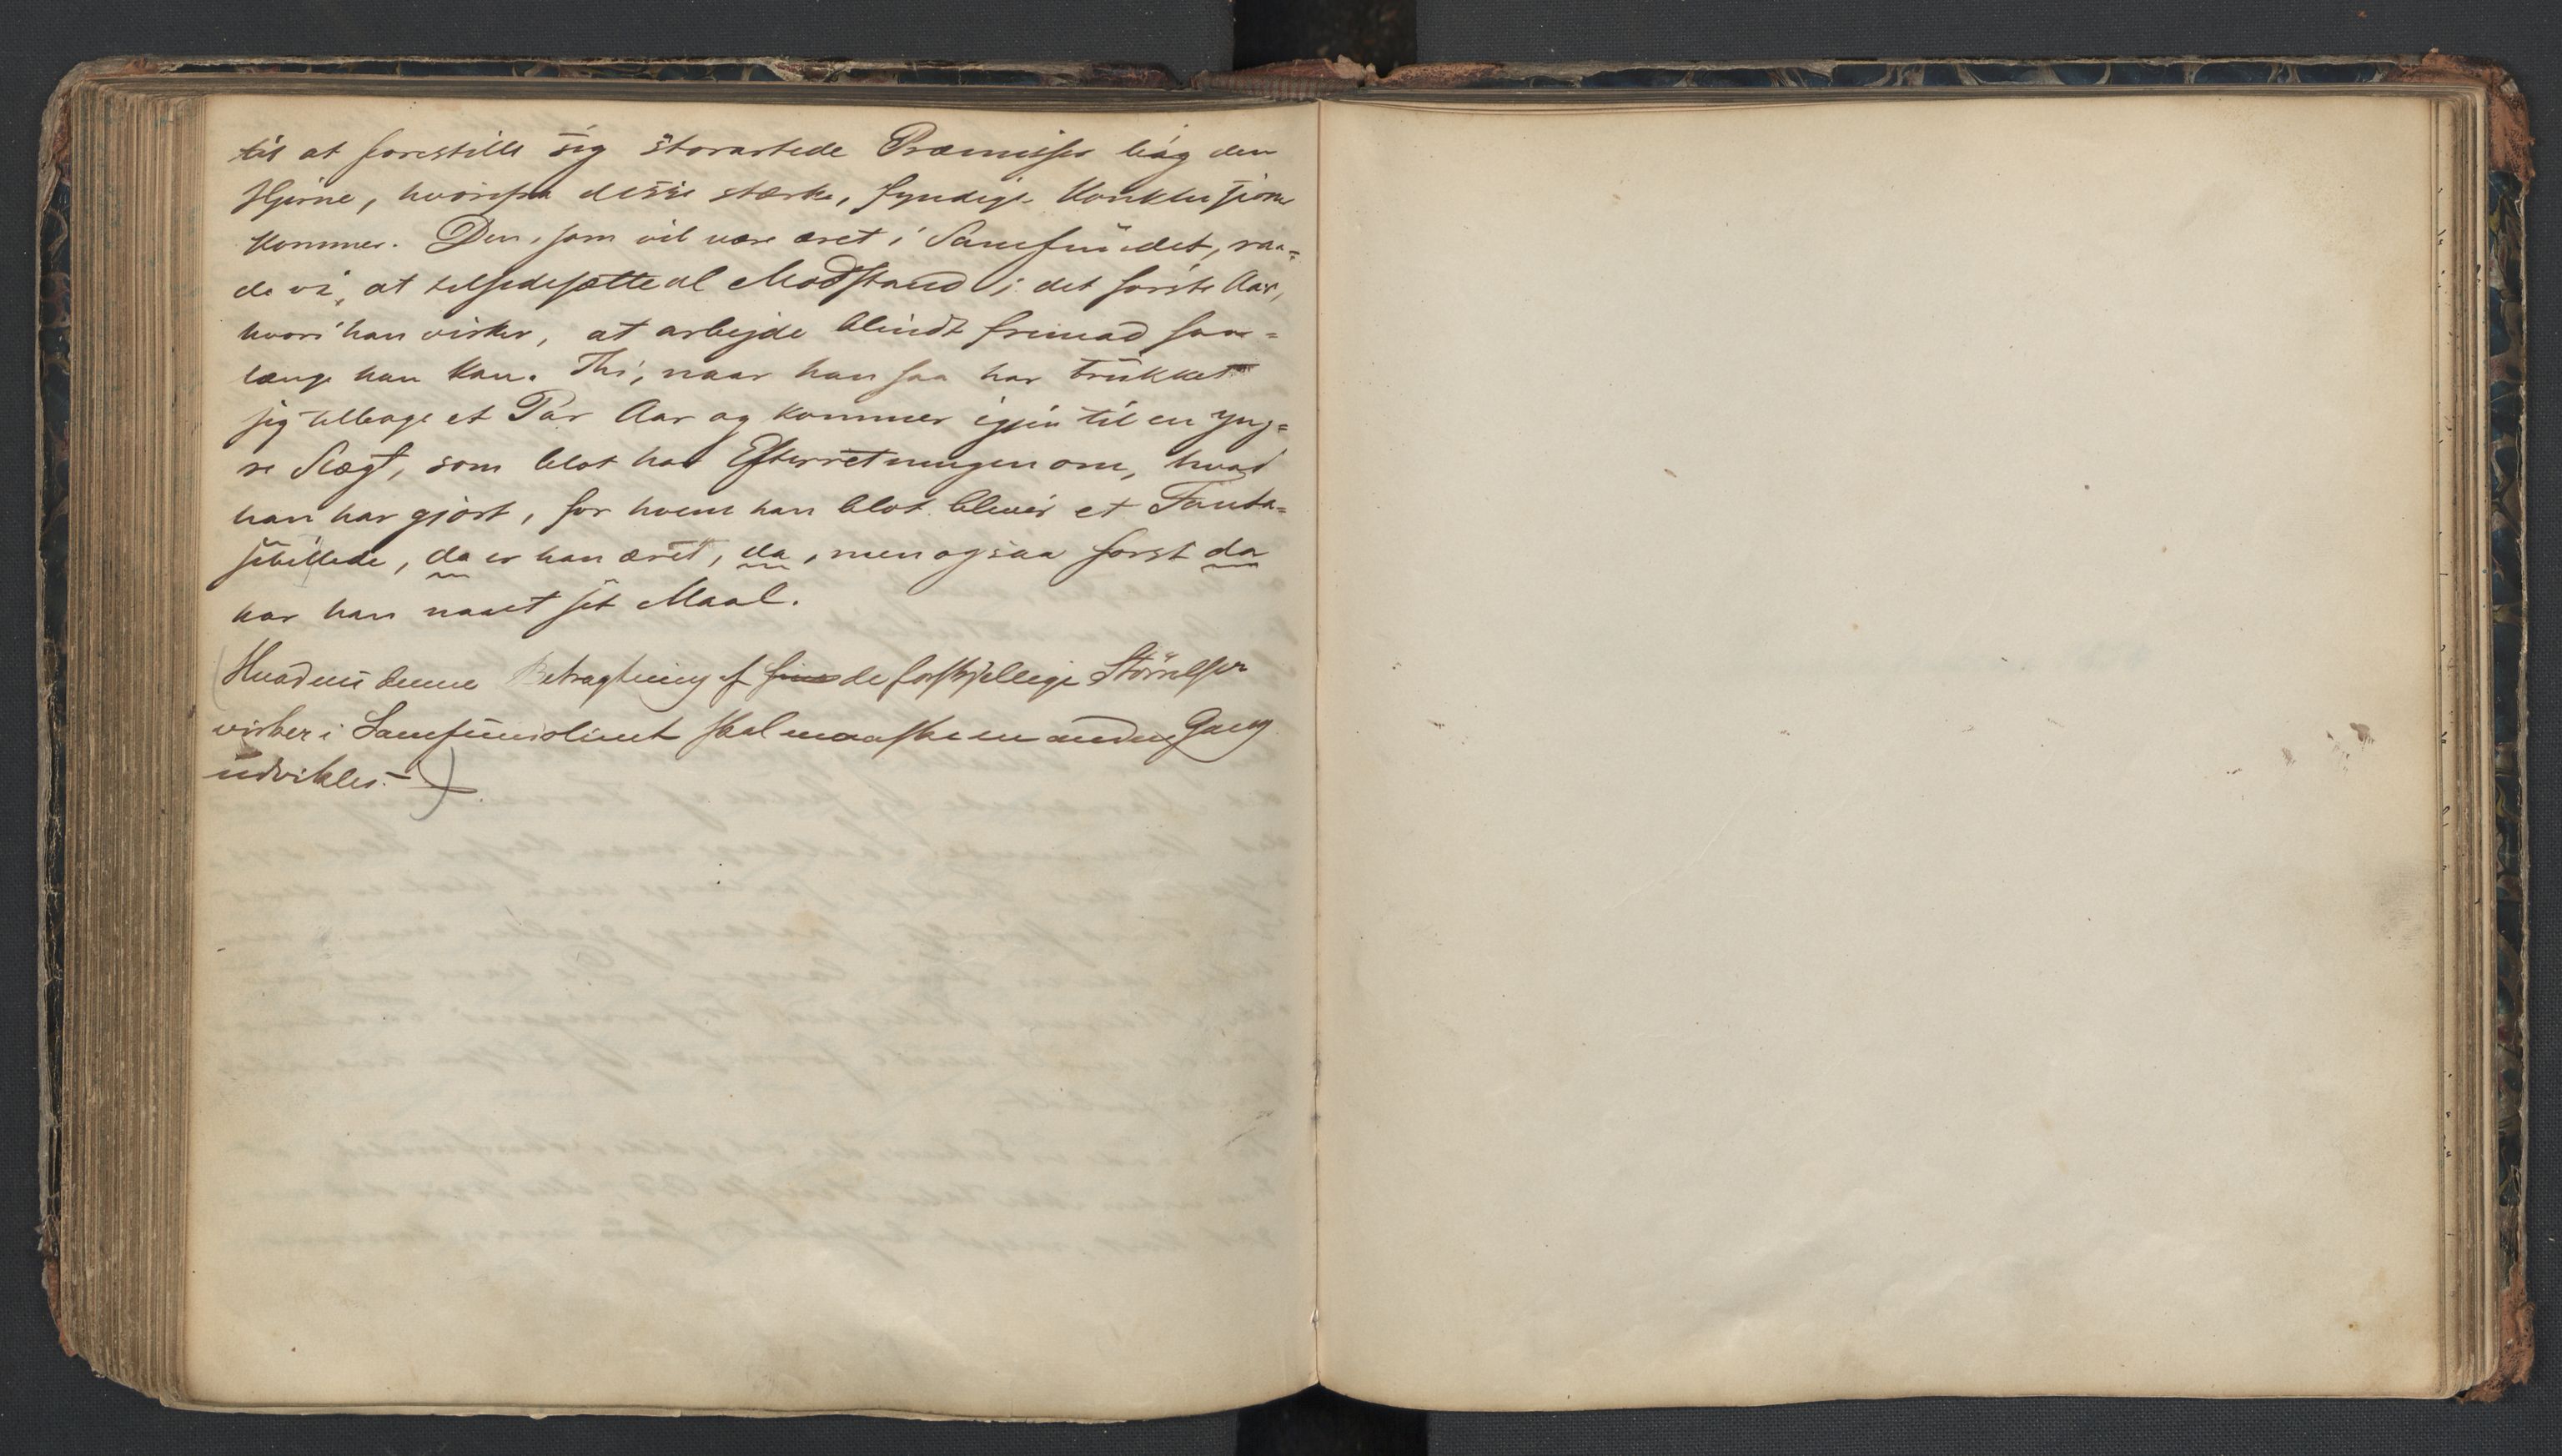 til at forestille sig storartede Præmisser bag den
Hjerne, hvorfra disse stærke, fyndige Konklusjoner
kommer. Den, som vil være æret i Samfundet, raa=
de vi, at tilsidesætte al Modstand i det første Aar,
hvori han virker, at arbejde blindt fremad saa=
længe han kan. Thi, naar han saa har trukket
sig tilbage et Par Aar og kommer igjen til en yng=
re Slægt, som blot har Efterretningen om, hvad
han har gjort, for hvem han blot bliver et Fanta=
sibillede, da er han æret, da, men ogsaa først da
har han naaet sit Maal.
(Hvad nu denne Betragtning af de forskjellige Størrelser
virker i Samfundslivet skal maaske en anden Gang
udvikles. –)